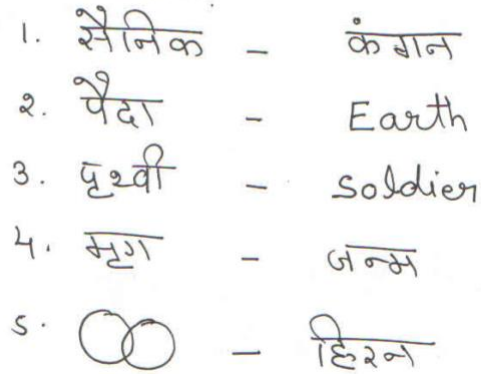 1. सैनिक - कंगन
२. पैदा - Earth
3. पृथ्वी - Soldier
4. मृग - जन्म
5. - हिरन